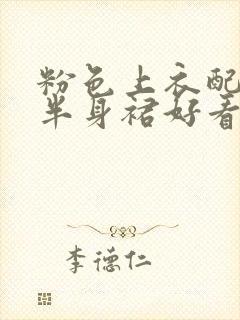 粉色上衣配
半身裙好看
李德仁